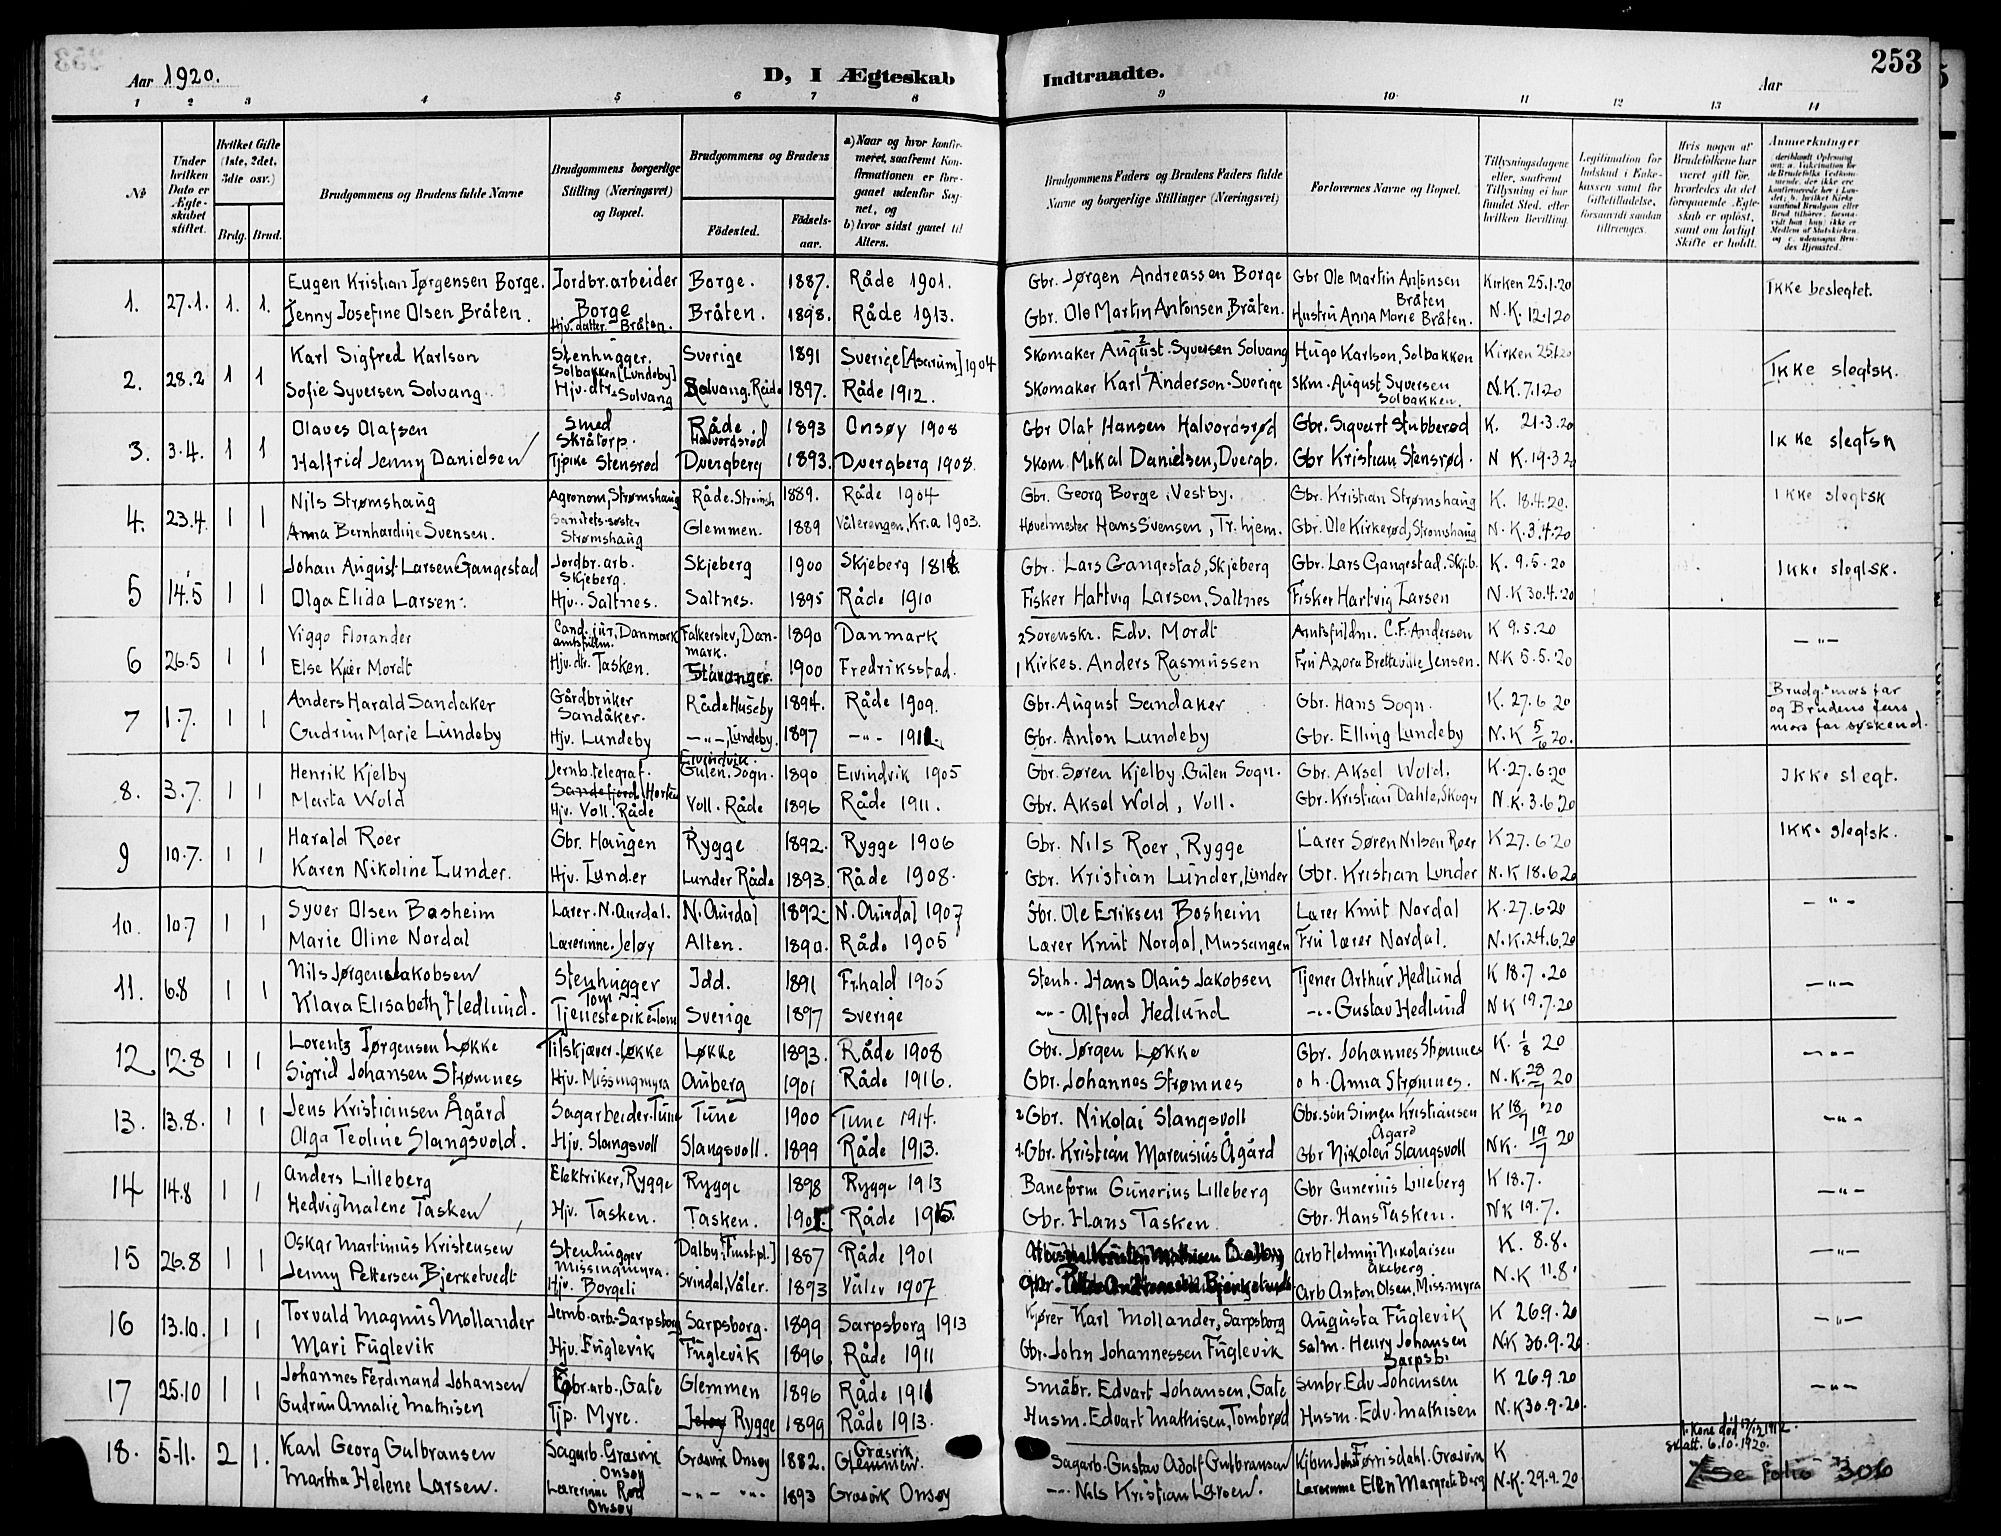 253
Aar 1920.
D, I Ægteskab Indtraadte.
Aar
1 2 3 4 5 6 7 8 9 10 11 12 13 14
No
Under hvilken Dato er Ægteskabet stiftet.
Hvilket Gifte (1ste, 2det, 3die osv.)
Brdg. Brud.
Brudgommens og Brudens fulde Navne
Brudgommens borgerlige Stilling (Næringsvei) og Bopæl.
Brudgommens og Brudens
Födested. Födselsaar.
a) Naar og hvor konfirmeret, saafremt Konfirmationen er foregaaet udenfor Sognet, og
b) hvor sidst gaaet til Alters.
Brudgommens Faders og Brudens Faders fulde Navne og borgerlige Stillinger (Næringsvei)
Forlovernes Navne og Bopæl.
Tillysningsdagene eller, saafremt Tillysning ei har fundet Sted, efter hvilken Bevilling.
Legitimation for Indskud i Enkekassen samt for Giftetilladelse, forsaavidt saadan tiltrænges.
Hvis nogen af Brudefolkene har været gift för, hvorledes da det foregaaende Ægteskab er oplöst, samt om lovligt Skifte er holdt.
Anmerkninger
1. 27.1. 1. 1. Eugen Kristian Jørgensen Borge. Jordbr.arbeider Borge. 1887. Råde 1901. Gbr. Jørgen Andreassen Borge Gbr Ole Martin Antonsen Bråten Kirken 25.1.20 Ikke beslegtet.
Jenny Josefine Olsen Bråten. Borge Hjv. datter Bråten. Bråten. 1898. Råde 1913. Gbr. Ole Martin Antonsen, Bråten. Hustru Anna Marie Bråten. N.K. 12.1.20
2. 28.2 1 1 Karl Sigfred Karlson Stenhugger, Solbakken [Lundeby] Sverige 1891 Sverige [Asarum] 1904 Skomaker August Syversen Solvang Hugo Karlson, Solbakken Kirken 25.1.20 Ikke slegtsk.
Sofie Syversen Solvang Hjv. dtr. Solvang Solvang. Råde 1897. Råde 1912. Skomaker Karl Anderson Sverige Skm. August Syversen Solbakken. N.K. 7.1.20
3. 3.4. 1 1 Olaves Olafsen Smed Skråtorp. Råde. Halvordsrød 1893 Onsøy 1908 Gbr Olaf Hansen Halvordsrød Gbr. Sigvart Stubberød K. 21.3.20 Ikke slegtsk
Halfrid Jenny Danielsen Tjpike Stensrød Dvergberg 1893. Dvergberg 1908. Skom. Mikal Danielsen, Dvergb. Gbr Kristian Stensrød. N K. 19.3.20
4. 23.4. 1 1 Nils Strømshaug Agronom, Strømshaug Råde. Strømsh 1889. Råde 1904 Gbr. Georg Borge, Vestby. Gbr. Kristian Strømshaug K. 18.4.20. Ikke slegtsk
Anna Bernhardine Svensen. Sanitets-søster Strømshaug Glemmen. 1889 Vålerengen, Kr.a 1903. Høvelmester Hans Svensen, Tr.hjem. Gbr. Ole Kirkerød, Strømshaug N.K. 3.4.20
5 14.5 1 1 Johan August Larsen Gangestad Jordbr.arb. Skjeberg. Skjeberg 1900 Skjeberg Gbr. Lars Gangestad, Skjeberg Gbr. Lars Gangestad. Skjb. K. 9.5.20 Ikke slegtsk.
Olga Elida Larsen. Hjv. Saltnes. Saltnes. 1895 Råde 1910 Fisker Hartvig Larsen, Saltnes Fisker Hartvig Larsen N.K 30.4.20
6 26.5 1 1 Viggo Florander Cand. jur, Danmark amtsfullm. Falkerslev, Danmark. 1890 Danmark 2 Sorenskr. Edv. Mordt Amtsfuldm. C.F. Andersen K 9.5.20 -"-
Else Kjær Mordt Hjv. dtr. Tasken. Stavanger. 1900 Fredriksstad. 1 Kirkes. Anders Rasmussen Fru Azora Bretteville Jensen. N.K 5.5.20
7 1.7. 1 1 Anders Harald Sandaker Gårdbruker Sandåker. Råde Huseby 1894. Råde 1909. Gbr. August Sandaker Gbr. Hans Sogn. K. 27.6 20 Brudg.s mors far og Brudens fars mors far syskend.
Gudrun Marie Lundeby Hjv. Lundeby -"-, Lundeby. 1897 -"- 1912. Gbr. Anton Lundeby Gbr. Elling Lundeby N.K 5/6 20.
8. 3.7. 1 1 Henrik Kjelby Jernb. telegraf. Sandefjord (Horten Eivindvik. Gulen. Sogn. 1890 Eivindvik 1905 Gbr. Søren Kjelby. Gulen Sogn. Gbr. Aksel Wold. K. 27.6.20 Ikke slegt.
Marta Wold Hjv. Voll. Råde Voll. Råde 1896 Råde 1911. Gbr. Aksel Wold, Voll. Gbr. Kristian Dahle, Skogn N.K. 3.6.20
9 10.7. 1 1 Harald Roer Gbr. Haugen Rygge 1892. Rygge 1906 Gbr. Nils Roer, Rygge Lærer Søren Nilsen Roer K 27.6.20 Ikke slegtsk.
Karen Nikoline Lunder. Hjv. Lunder Lunder Råde 1893. Råde 1908. Gbr. Kristian Lunder, Lunder Gbr. Kristian Lunder N.K 18.6.20
10. 10.7 1 1 Syver Olsen Bøsheim Lærer. N. Aurdal. N. Aurdal 1892. N. Aurdal 1907 Gbr. Ole Eriksen Bøsheim Lærer Knut Nordal K. 27.6.20 -"-
Marie Oline Nordal Lærerinne. Jeløy Alten. 1890. Råde 1905 Lærer Knut Nordal, Mussangen Fru lærer Nordal. N.K. 24.6.20
11. 6.8 1 1 Nils Jørgen Jakobsen Stenhugger Tom Idd. 1891 Fr.hald 1905 Stenh. Hans Olaus Jakobsen Tjener Arthur Hedlund K 18.7.20 -"-
Klara Elisabeth Hedlund. Tjenestepike Tom Sverige 1897 Sverige -"- Alfred Hedlund -"- Gustav Hedlund N K 19.7.20
12 12.8 1 1 Lorentz Jørgensen Løkke Tilskjærer. Løkke Løkke 1893. Råde 1908 Gbr. Jørgen Løkke Gbr. Johannes Strømnes K. 1/8 20 -"-
Sigrid Johansen Strømnes Hjv. Missingmyra Auberg 1901 Råde 1916. Gbr. Johannes Strømnes o h. Anna Strømnes. N.K. 28/7 20
13. 13.8. 1 1 Jens Kristiansen Ågård Sagarbeider. Tune Tune 1900 Tune 1914. 2 Gbr. Nikolai Slangsvoll Gbr. søn Simen Kristiansen Ågård K 18/7 20 -"-
Olga Teoline Slangsvold. Hjv. Slangsvoll Slangsvoll. 1899 Råde 1913. 1. Gbr. Kristian Marensius Ågård Gbr Nikolai Slangsvoll NK. 19/7 20
14 14.8 1 1 Anders Lilleberg Elektriker, Rygge Rygge 1898 Rygge 1913 Baneform Gunerius Lilleberg Gbr Gunerius Lilleberg K 18.7. -"-
Hedvig Malene Tasken Hjv. Tasken. Tasken. Råde 1915. Gbr. Hans Tasken. Gbr. Hans Tasken. NK 19.7.
15 26.8 1 1 Oskar Martinius Kristensen Stenhugger Missingmyra. Dalby 1887 Råde 1901 Kristen Mathisen Dalby Arb Helmer Nikolaisen Åkeberg K. 8.8. -"-
Jenny Pettersen Bjerketvedt Hjv. Borgeli Svindal, Våler. 1893 Våler 1907 Gbr. Arb Anton Olsen, Miss.myra N.K 11.8.
16 13.10. 1 1 Torvald Magnus Mollander Jernb.arb. Sarpsborg Sarpsborg. 1899 Sarpsborg 1913 Kjører Karl Mollander, Sarpsborg Augusta Fuglevik K 26.9.20 -"-
Mari Fuglevik Hjv. Fuglevik Fuglevik 1896 Råde 1911 Gbr. John Johannessen Fuglevik Salm. Henry Johansen Sarpsb. NK 30.9.20.
17 25.10 1 1 Johannes Ferdinand Johansen Gbr.arb., Gate Glemmen 1896 Råde 1911 Småbr. Edvart Johansen, Gate Smbr. Edv Johansen K 26.9.20 -"-
Gudrun Amalie Mathisen Tjp. Myre. Jeløy Rygge 1899 Råde 1913. Husm. Edvart Mathisen, Tombrød Husm. Edv. Mathisen N.K 30.9.20.
18. 5.11. 2 1. Karl Georg Gulbransen Sagarb. Græsvik Onsøy Græsvik Onsøy 1882. Græsvik Glemmen. Sagarb. Gustav Adolf Gulbransen Kjbm John Førrisdahl. Græsvik K 1. Kone død 17/12 1912. Skatt. 6.10.1920.
Martha Helene Larsen. Lærerinne Rød Onsøy -"- -"- 1893 Græsvik Onsøy -"- Nils Kristian Larsen. Lærerinne Ellen Margrete Berg N.K. 29.9.20 Se folio 306